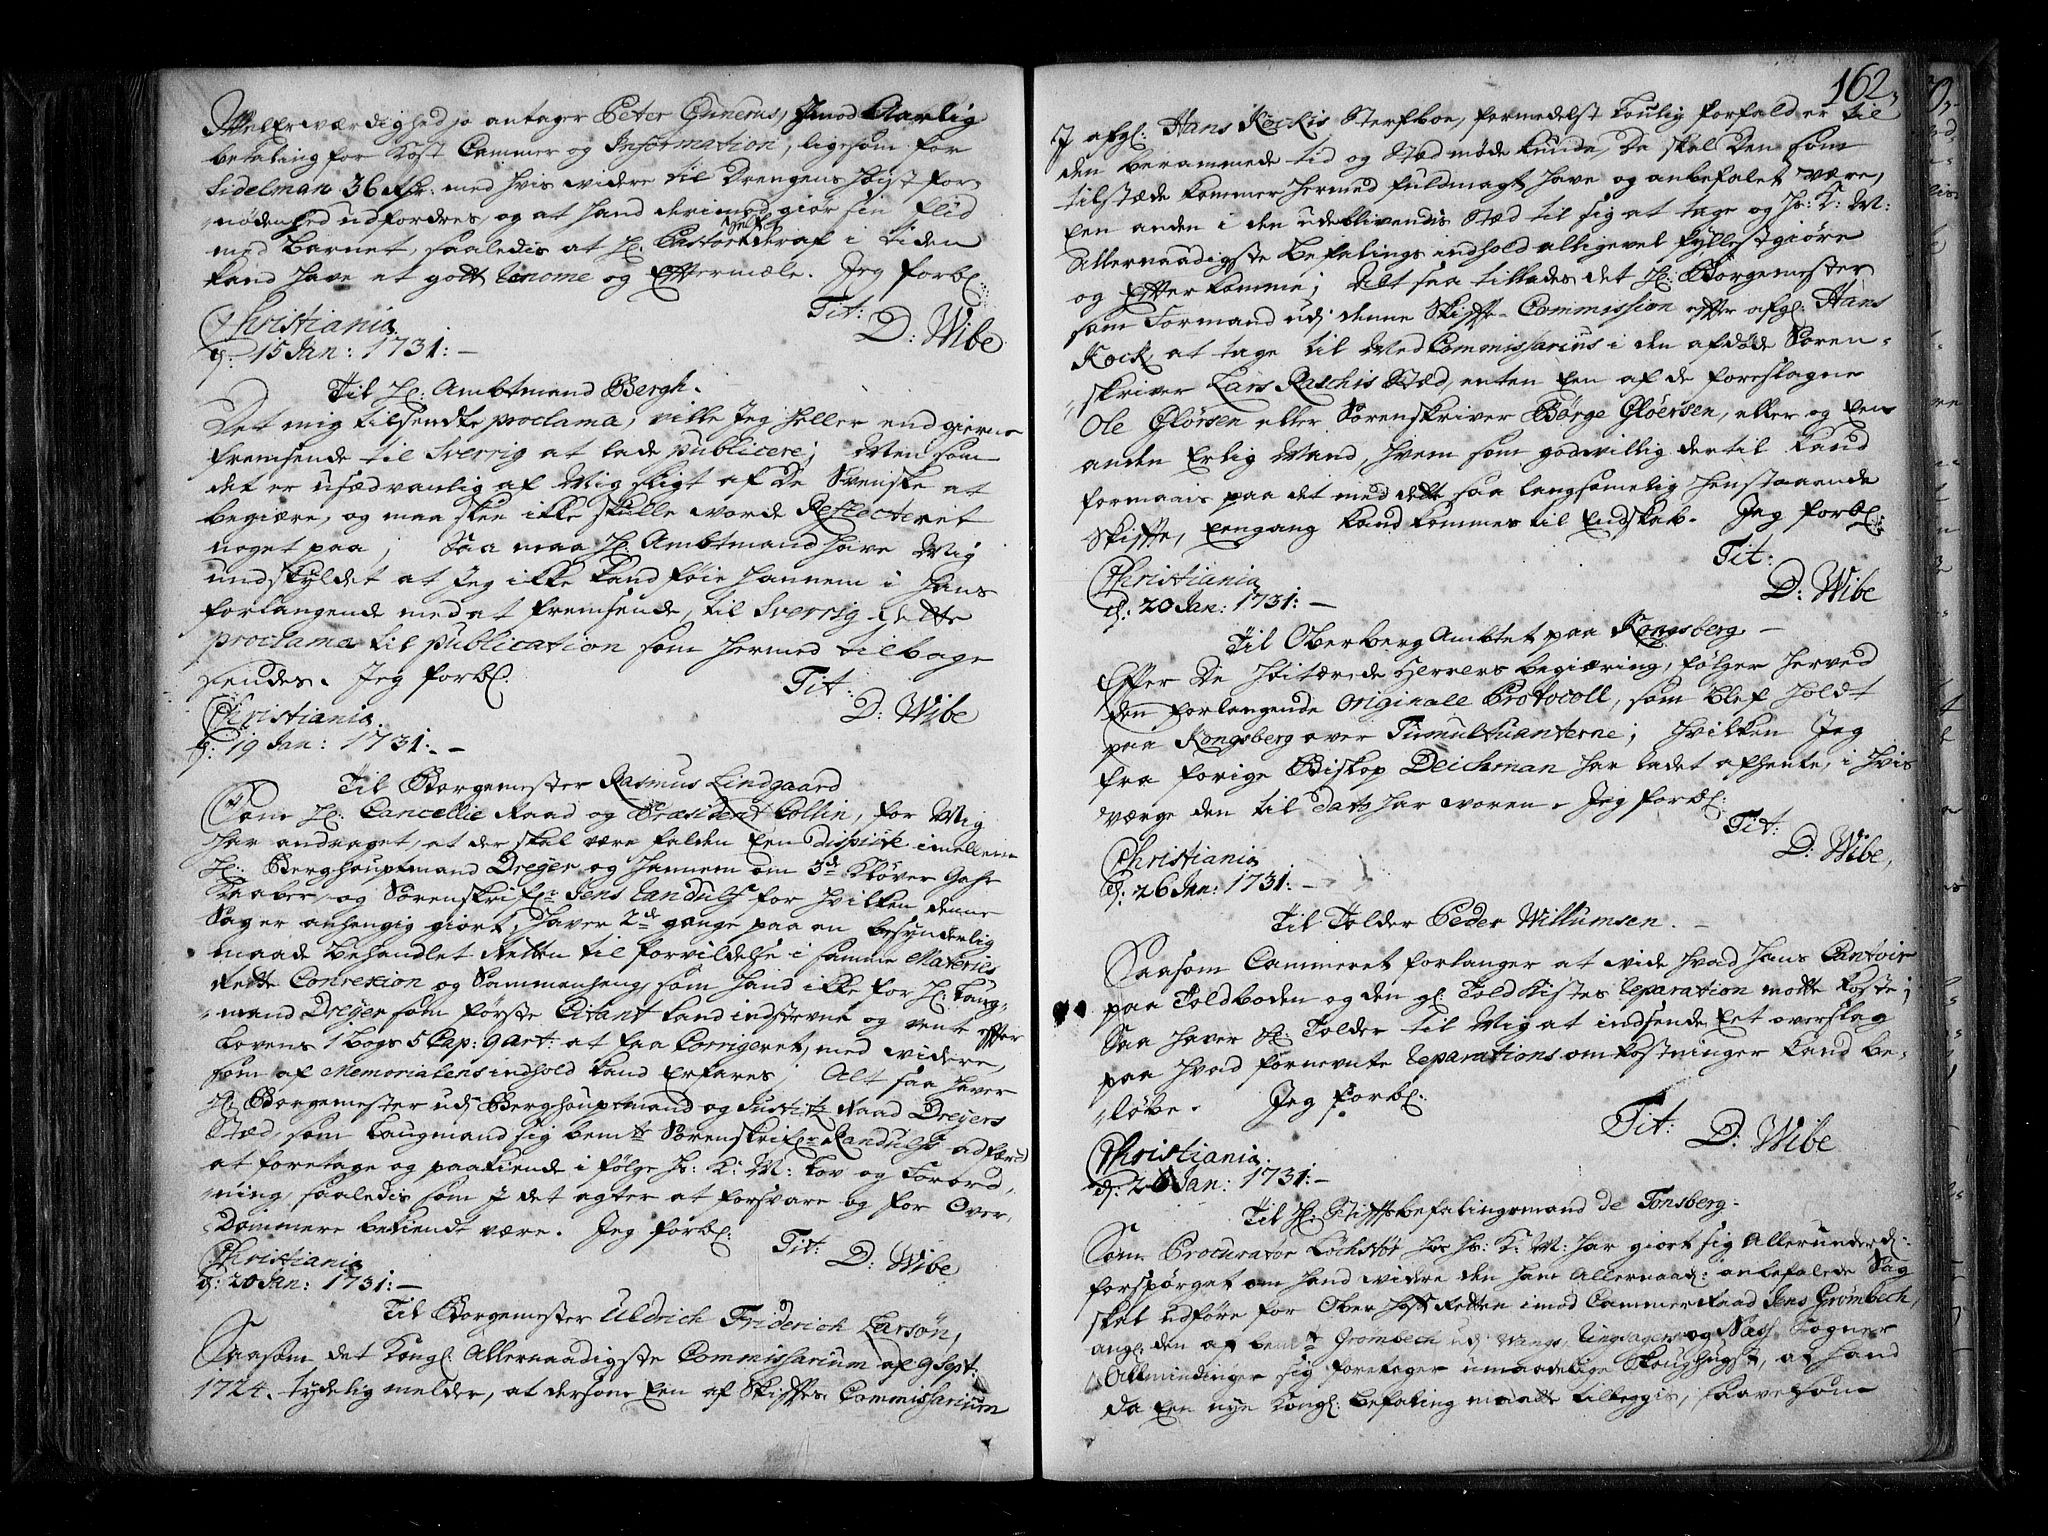 WelErværdighed jo antager Peter Gunerus, Jmod Aarlig
betaling for Kost Cammer og Information, ligesom for
Sidelman 36 Rdr. med hvis videre til Drengens høist for-
nødenhed udfordres, og at hand derimod giør sin flid
med Barnet, saaledis at H: Pastor deraf i tiden
kand have et godt Renome og Eftermæle. Jeg forbl:
Tit:
D: Wibe
Christiania
d: 15 Jan: 1731: —
Til H: Ambtmand Bergh.
Det mig tilsendte proclama, ville Jeg heller end gierne
fremsende til Sverrig at lade publicere; Men som
det er usædvanlig af Mig sligt af De Svenske at
begiære, og maa skee ikke skulle worde Reflecteret
noget paa; Saa maa H: Ambtmand have Mig
undskyldet at Jeg ikke kand føie hannem i hans
forlangende med at fremsende, til Sverrig dette
proclama til publication som hermed tilbage
sendes. Jeg forbl:
Tit:
D: Wibe
Christiania
d: 19 Jan: 1731: —
Til Borgemester Rasmus Lindgaard
Som H: Cancellie Raad og Præsident Collin, for Mig
har andraget, at der skal være falden Een dispüte imellem
H: Berghauptmand Dreyer og hannem om 3de Kløver Gahr
Kaaber, og Sorenskrifr: Jens Randulf for hvilken denne
Sag er anhengig giort, haver 2de gange paa en besynderlig
maade behandlet Retten til forvildelse i samme Materies
Rette Connexion og Sammenheng, som hand ikke for H: Laug-
mand Dreyer som første Citant kand indstevne og vente efter
Lovens 1 Bogs 5 Cap: 9 art: at faa Corrigeret, med widere,
som af Memorialens indhold kand Erfares; Alt saa haver
H: Borgemester udj Berghauptmand og Justitz Raad Dreyers
Stæd, som Laugmand sig bemte Sorenskrifr: Randulfs adfærd
at foretage og paakiende i følge Hs: K: M: Lov og Forord-
ning, saaledis som I det agter at forsvare og for Over
Dommere bekiendt være. Jeg forbl:
Tit:
D: Wibe
Christiania
d: 20 Jan: 1731: —
Til Borgemester Uldrich Friderich Larsøn,
Saasom det Kongl: Allernaadigste Commissarium af 9 Sept:
1724. tydelig melder, at dersom Een af Skiftes Commissarium
162,
J afgl: Hans Kockis Sterfboe, formedelst Loulig forfald er til
den berammede tid og Stæd møde kunde, Da skal Den som
tilstæde kommer hermed fuldmagt have og anbefalet være,
Een anden i den udeblivendis Stæd til sig at tage og Hs: K: M:
Allernaadigste Befalings indhold alligevel fyllestgiøre
og Efterkomme; Alt saa tillades det H: Borgemester
som Formand udj denne Skifte-Commission efter afgl: Hans
Kock, at tage til Med Commissarius i den afdøde Soren-
skriver Lars Raschis Stæd, enten Een af de foreslagne
Ole Glørsen eller Sorenskriver Børge Gløersen, eller og Een
anden Erlig Mand, hvem som godwillig dertil kand
formaais paa det med dette saa langsomelig henstaaende
Skifte, Eengang kand kommes til Endskab. Jeg forbl:
Tit:
D: Wibe
Christiania
d: 20 Jan: 1731: —
Til Oberberg Ambtet paa Kongsberg —
Efter De høitærede Herrers begiæring, følger herved
den forlangende originale Protocoll, som blef holdt
paa Kongsberg over Tumultuanterne; hvilken Jeg
fra forige Biskop Deichman har ladet afhente, i hvis
værge den til dato har woren. Jeg forbl:
Tit:
D: Wibe,
Christiania
d: 26 Jan: 1731: —
Til Tolder Peder Willumsen. —
Saasom Cammeret forlanger at vide hvad hans Cantoir
paa Toldboden og den gl: Told Kistes Reparation motte koste;
Saa haver H: Tolder til Mig at indsende Eet overslag
paa hvad fornevnte Reparations omkostninger kand be-
løbe. Jeg forbl:
Tit:
D: Wibe
Christiania
d: 26 Jan: 1731: —
Til H: Stiftsbefalingsmand de Tonsberg.
Som Procurator Lochstør hos Hs: K: M: har giort sig Allerunderd:
forspørget om hand widere den ham Allernaad: anbefalede Sag
skal udføre for Ober Hoff Retten imod Cammer Raad Jens Grømbech,
angl: den af bemte Grombech udj Vangs, Ringsagers og Næss Sogner
Allmindinger sig foretager umaadelige Skoughugst, at hand
da Een nye Kongl: befaling maatte tillæggis, saavelsom